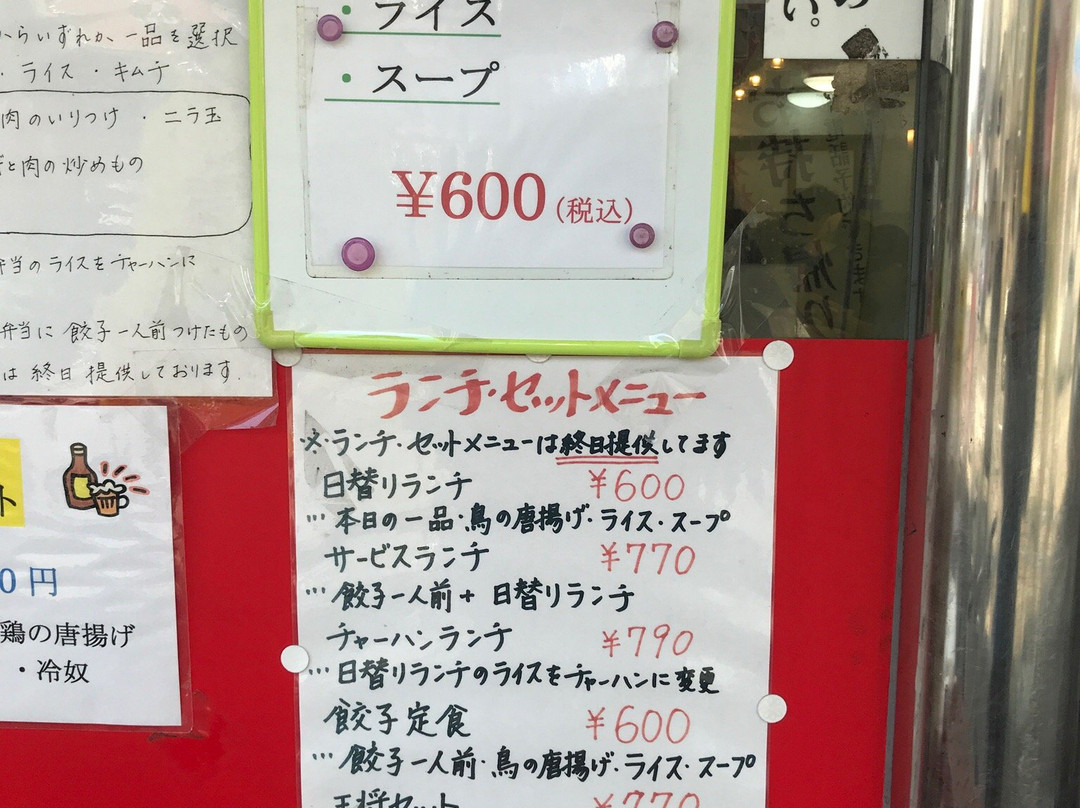 からいずれか一品を選択
・ライス・キムチ
肉のいりつけ・ニラ玉
と肉の炒めもの
弁当のライスをチャーハンに
弁当に餃子一人前つけたもの
は終日提供しております.
ト
0円
鶏の唐揚げ
・冷奴
・ライス
・スープ
¥600(税込)
い。
ランチ・セットメニュー
※ランチ・セットメニューは終日提供してます
日替りランチ ¥600
…本日の一品・鳥の唐揚げ・ライス・スープ
サービスランチ ¥770
…餃子一人前+日替りランチ
チャーハンランチ ¥790
…日替りランチのライスをチャーハンに変更
餃子定食 ¥600
…餃子一人前・鳥の唐揚げ・ライス・スープ
王将セット ¥770